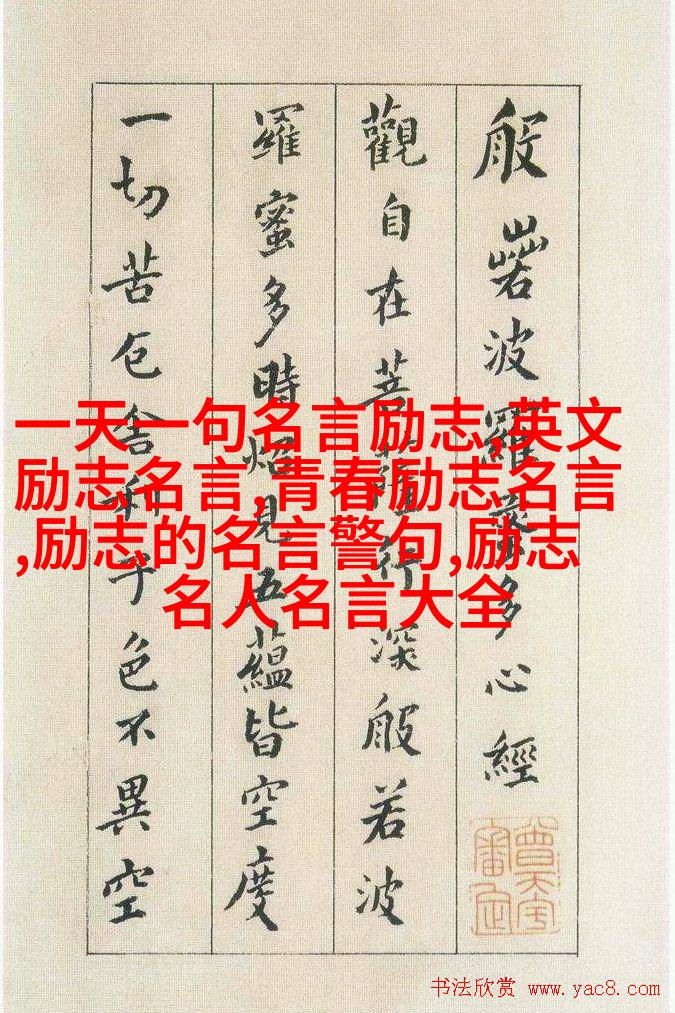 般若波羅蜜多心經
觀自在菩薩行深般若波
羅蜜多時照見五蘊皆空度
一切苦厄舍利子色不異空
一天一句名言励志,英文
励志名言,青春励志名言
,励志的名言警句,励志
名人名言大全
书法欣赏 www.yac8.com